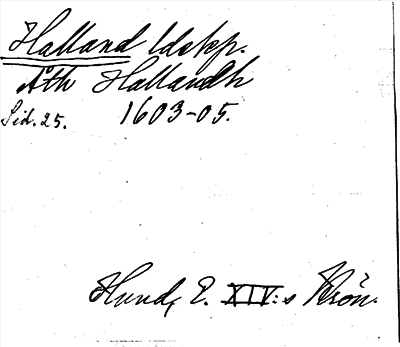 Halland ldskp.
Åth Hallandh
Sid. 25. 1603-05.
Hund, E. XIV:s Krön.